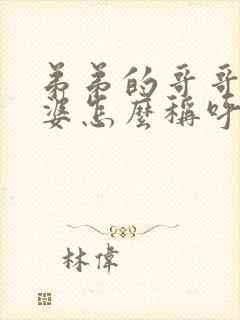 弟弟的哥哥
婆怎麼稱呼
林偉